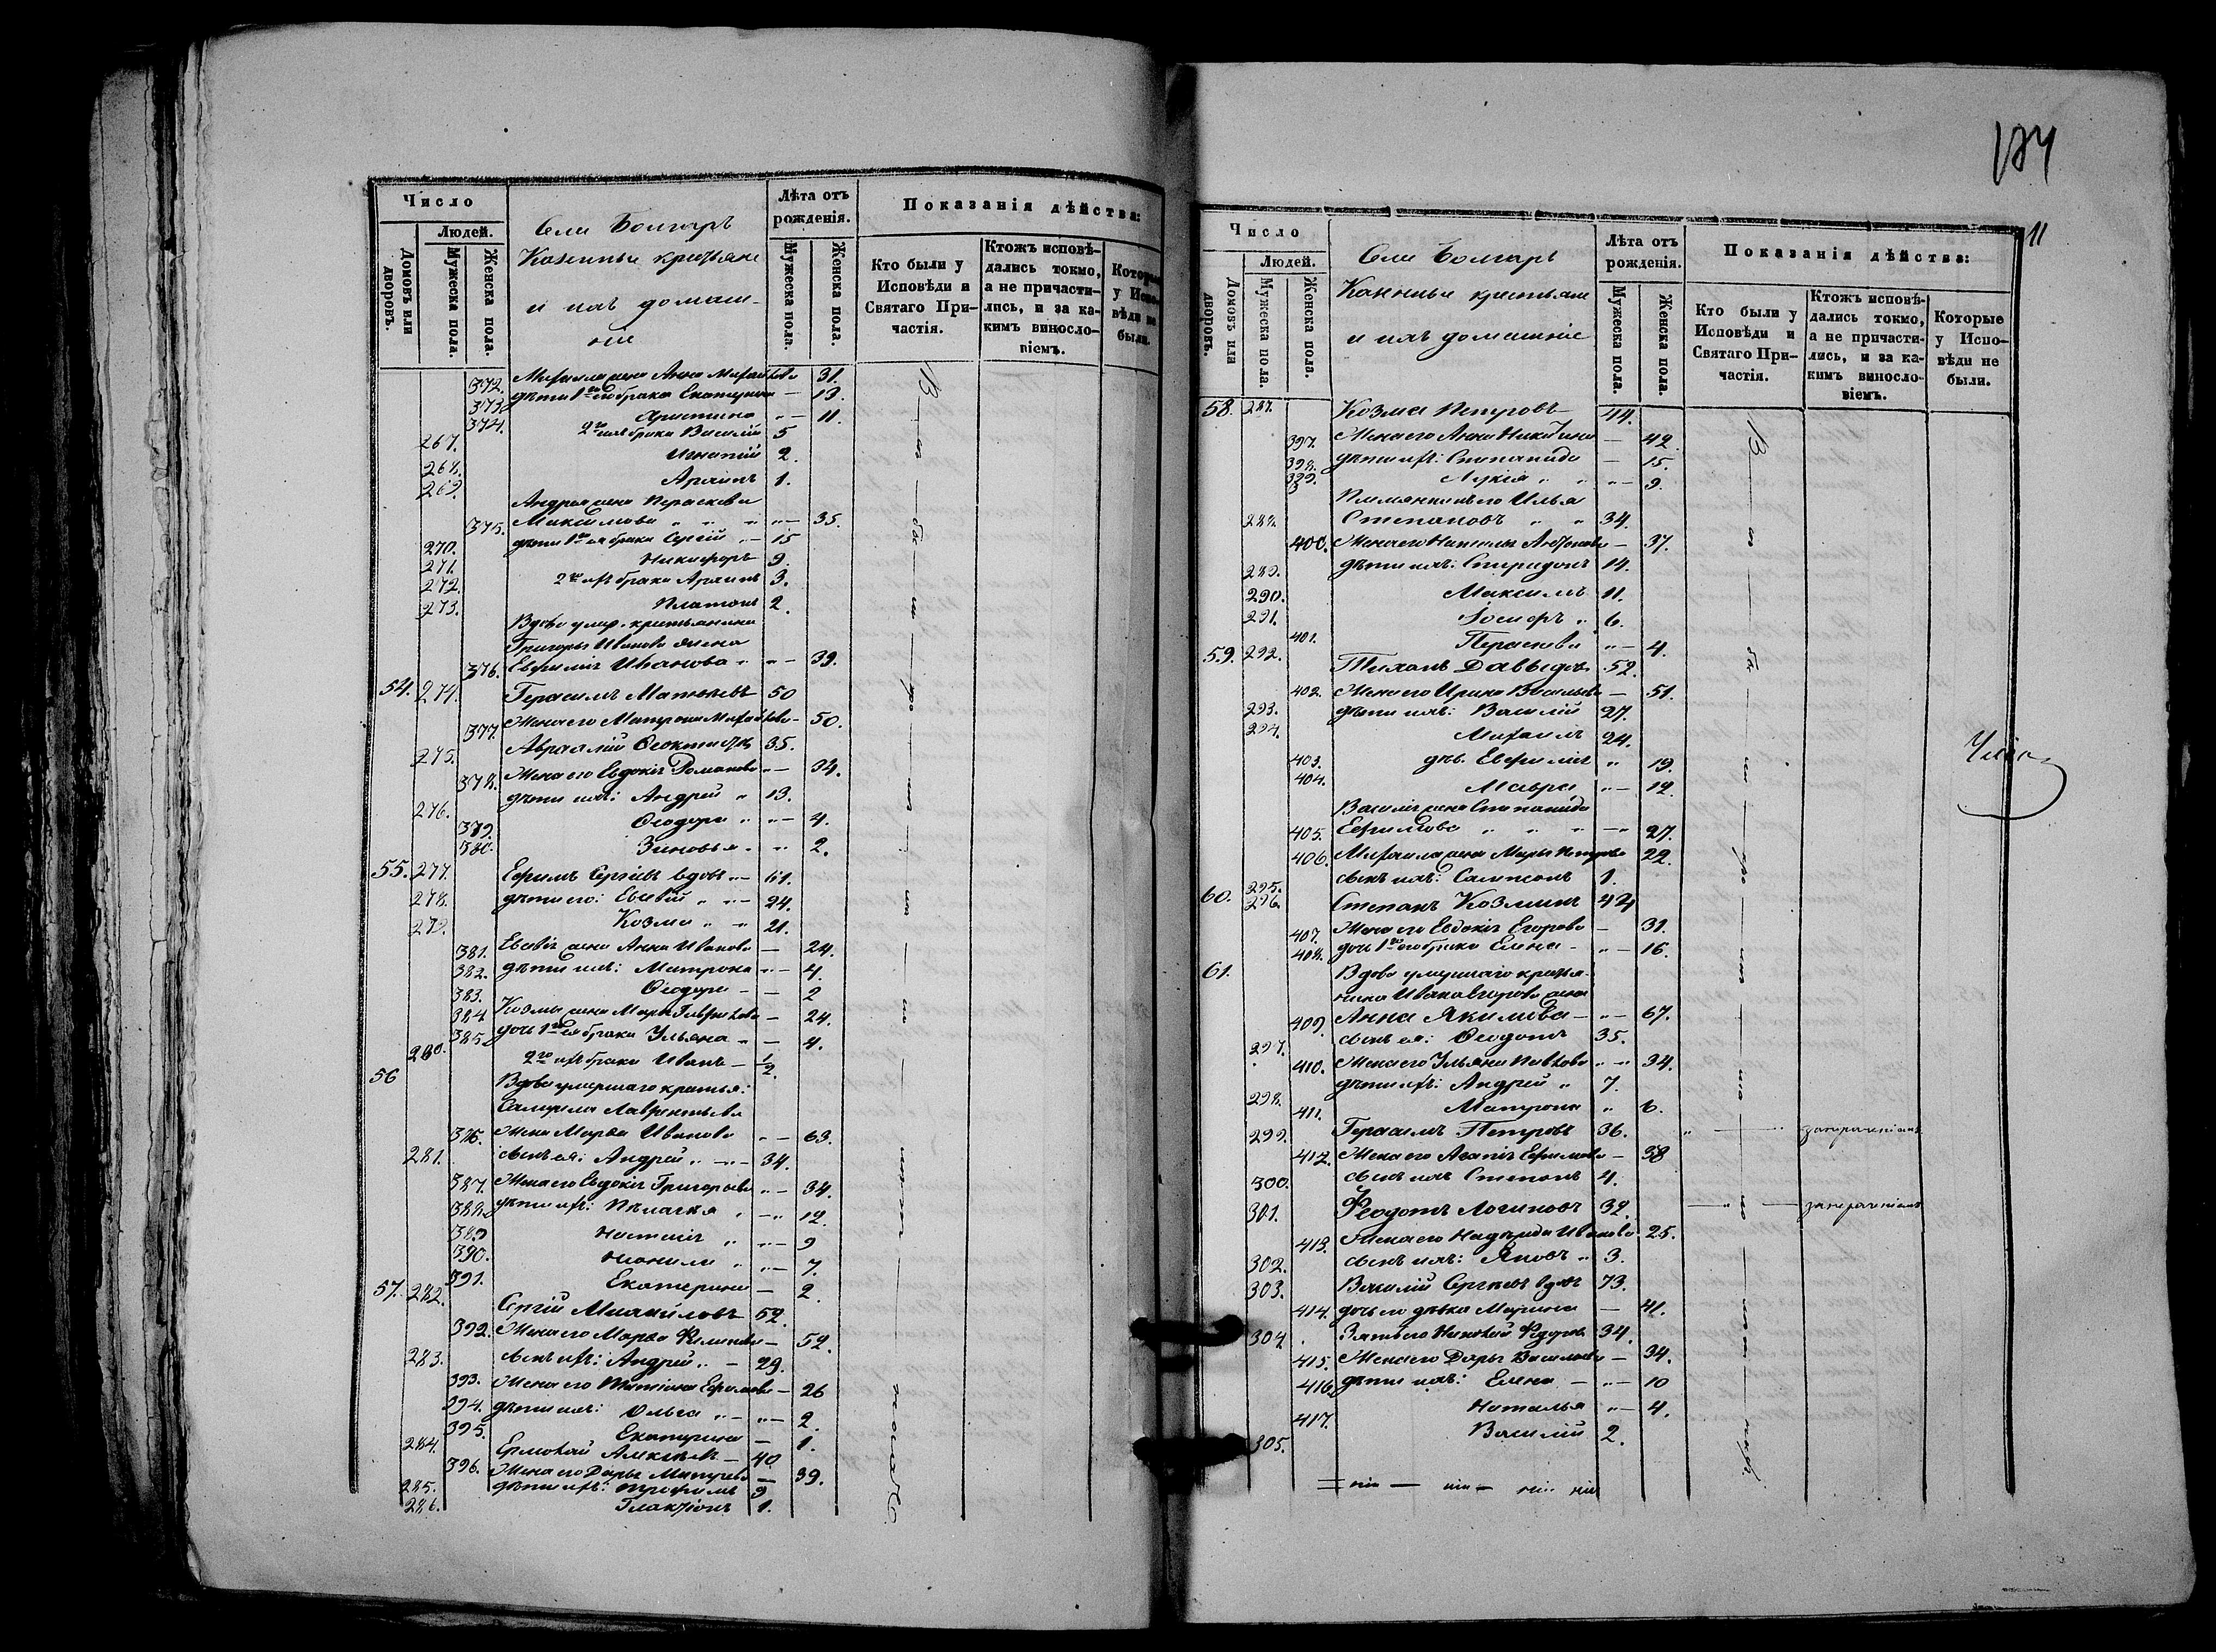 Число
Людей.
Домовъ или дворовъ.
Мужеска пола.
Женска пола.
Села Болгаръ
Казенные крестьяне
и ихъ домаш-
ніе
Лѣта отъ рожденія.
Мужеска пола.
Женска пола.
Показанія дѣйства:
Кто были у Исповѣди и Святаго При-частія.
Ктожъ исповѣ-дались токмо, а не причасти-лись, и за ка-кимъ винословіемъ.
Которые у Испо-вѣди не были.
372. Михаила жена Анна 31.
373. дѣти 1го его брака Екатерина — 13.
374. Христина — 11.
267. 2го ихъ брака Василій 5
268. Игнатій 2.
269. Архипъ 1.
Андрея жена Параскева
375. Максимова — 35.
270. дѣти 1го ея брака Сергій — 15
271. Никифоръ 9.
272. 2го ихъ брака Архипъ 3.
273. Платонъ 2.
Вдова умер. крестьянина
Григорья Иванова жена
376. Евфимія Иванова — 39.
54. 274. Герасимъ Матвѣевъ 50
377. Жена его Матрона — 50.
275. Авраамій Ѳеоктистовъ 35.
378. Жена его Евдокія Романова — 34.
276. дѣти ихъ: Андрей 13.
379. Ѳеодора — 4.
380. Зиновья 2.
55. 277. Ефимъ Сергѣевъ вдовъ — 61.
278. дѣти его: Евсевій — 24.
279. Козма 21.
381. Евсевія жена Анна Иванова — 24.
382. дѣти ихъ: Матрона — 4.
383. Ѳеодора — 2
384. Козмы жена Марья — 24.
385. дочь 1го ея брака Ульяна — 4.
280. 2го ихъ брака Иванъ — 1/2.
56 Вдова умершаго крестья:
Самуила Лаврентьева
386. жена Марѳа Иванова — 63.
281. сынъ ея: Андрей — 34.
387. Жена его Евдокія Григорьева — 34.
388. дѣти ихъ: Пелагея — 12.
389 Настасія — 9
390. Неонила — 7.
391. Екатерина — 2.
57. 282. Сергій Михайловъ 52.
392. Жена его Марѳа — 52.
283. сынъ ихъ: Андрей — 29.
393. Жена его Татіана Ефимова — 26
394. дѣти ихъ: Ольга — 2.
395. Екатерина — 1.
284. Ермолай Алексѣевъ — 40
396. Жена его Дарья — 39.
285. дѣти ихъ: Трофимъ 9
286. Галактіонъ 1.
134
11
Число
Людей.
Домовъ или дворовъ.
Мужеска пола.
Женска пола.
Села Болгаръ
Казенные крестьяне
и ихъ домашніе
Лѣта отъ рожденія.
Мужеска пола.
Женска пола.
Показанія дѣйства:
Кто были у Исповѣди и Святаго При-частія.
Ктожъ исповѣ-дались токмо, а не причасти-лись, и за ка-кимъ винословіемъ.
Которые у Испо-вѣди не были.
58. 287. Козма Петровъ 44.
397. Жена его Анна Никитина — 42.
398. дѣти ихъ: Степанида — 15.
399. Лукія — 9.
Племянникъ его Илья
288. Степановъ 34.
400. Жена его Наталья Антонова — 37.
289. дѣти ихъ: Спиридонъ 14.
290. Максимъ 11.
291. Іосифъ 6.
401. Параскева — 4.
59. 292. Тихонъ Давыдовъ 52.
402. Жена его Ирина Васильева — 51.
293. дѣти ихъ: Василій 27.
294. Михаилъ 24.
403. дѣв. Евфимія 19.
404. Мавра — 12.
Василія жена Степанида
405. Ефимова — 27.
406. Михаила жена Марья Петрова 22.
295. сынъ ихъ: Сампсонъ 1.
60. 296. Степанъ Козминъ 42
407. Жена его Евдокія Егорова — 31.
408. дочь 1го его брака Елена — 16.
61. Вдова умершаго крестья-
нина Ивана Егорова жена
409. Анна Якимова — 67.
297. сынъ ея: Ѳеодотъ 35.
410. Жена его Ульяна Павлова — 34.
298. дѣти ихъ: Андрей 7.
411. Матрона 6.
299. Герасимъ Петровъ 36. за нераченіемъ
412. Жена его Агапія Ефимова — 38
300. сынъ ихъ Степанъ 4.
301. Ѳеодотъ Логиновъ 32. за нераченіемъ
413. Жена его Надежда Иванова 25.
302. сынъ ихъ: Яковъ 3.
303. Василій Сергѣевъ вдовъ 73.
414. дочь его дѣвка Марина — 41.
304 Зять его Николай Ѳедоровъ 34.
415. Жена его Дарья Васильева — 34.
416. дѣти ихъ: Елена — 10
417. Наталья — 4.
305. Василій 2.